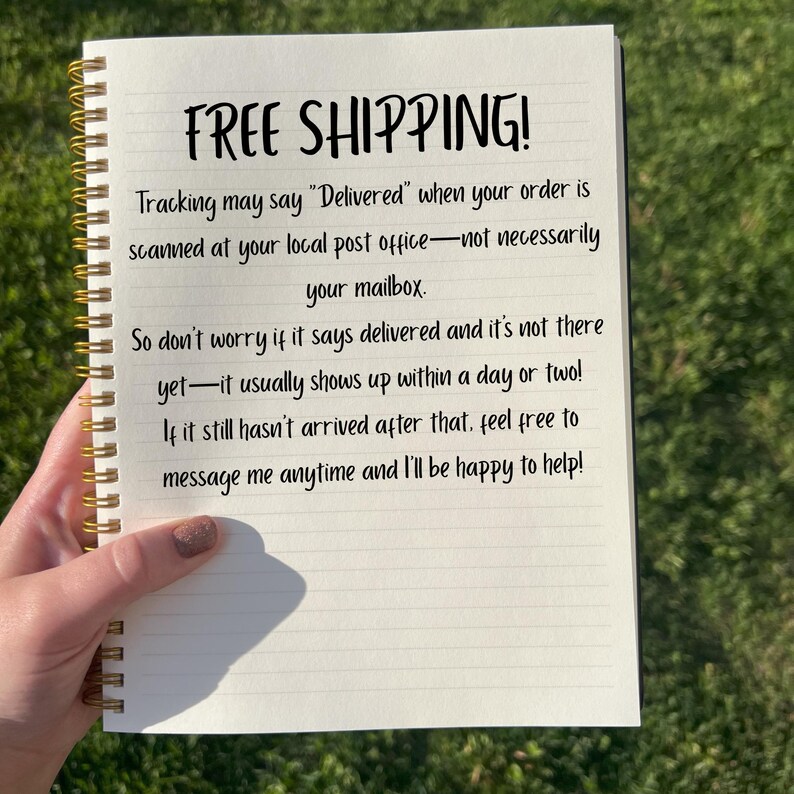 FREE SHIPPING!
Tracking may say "Delivered" when your order is
scanned at your local post office—not necessarily
your mailbox.
So don't worry if it says delivered and it's not there
yet—it usually shows up within a day or two!
If it still hasn't arrived after that, feel free to
message me anytime and I'll be happy to help!